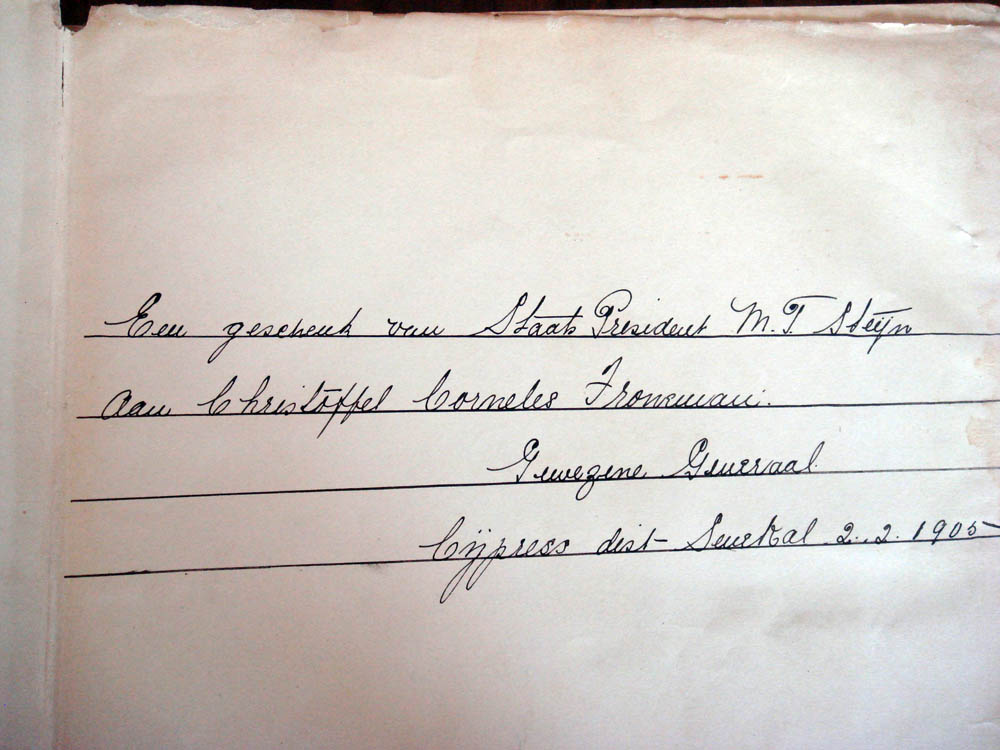 Een geschenk van Staats President M. T Steijn
aan Christoffel Corneles Froneman.
Gewezene Generaal
Cijpress dist Senekal 2.2.1905